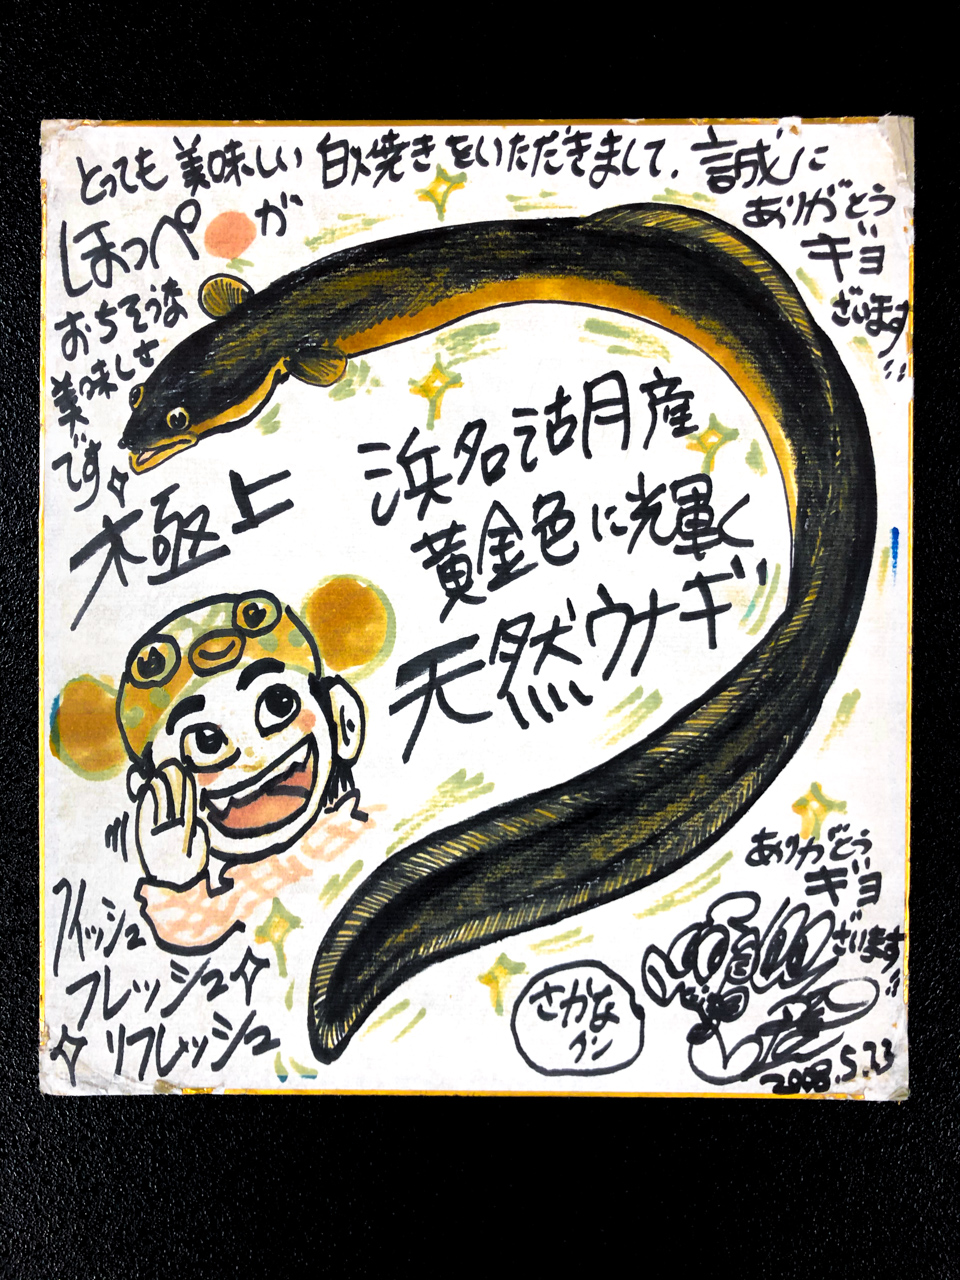 とっても美味しい白焼きをいただきまして、誠に
ありがとう
ギョ
ざいます!!
ほっぺが
おちそうな
美味しさ
です
極上
浜名湖月産
黄金色に光輝く
天然ウナギ
フィッシュ
フレッシュ
リフレッシュ
さかな
クン
ありがとう
ギョ
ざいます!!
2008.5.23